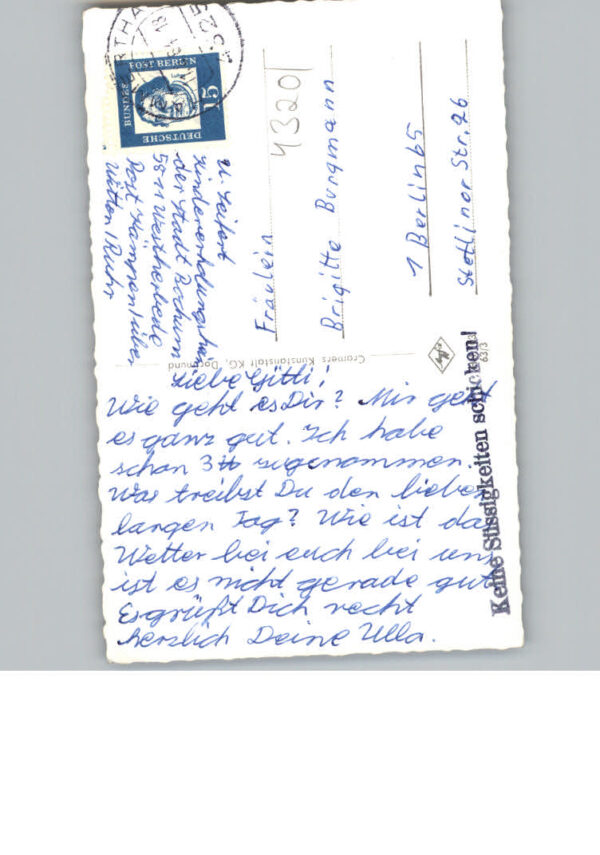 Liebe Gitti!
Wie geht es Dir? Mir geht
es ganz gut. Ich habe
schon 3 ℔ zugenommen.
Was treibst Du den lieben
langen Tag? Wie ist das
Wetter bei euch bei uns
ist es nicht gerade gut
Es grüßt Dich recht
herzlich Deine Ulla.
Keine Süssigkeiten schicken!
U. Seifert
Kindererholungsheim
der Stadt Bochum
5811 Westherbede
Post Kämpen über
Witten/Ruhr
DEUTSCHE
BUNDESPOST BERLIN
15
4320
Fräulein
Brigitte Burgmann
1 Berlin 65
Stettiner Str. 26
Cramers Kunstanstalt KG, Dortmund
Agfa
63/3